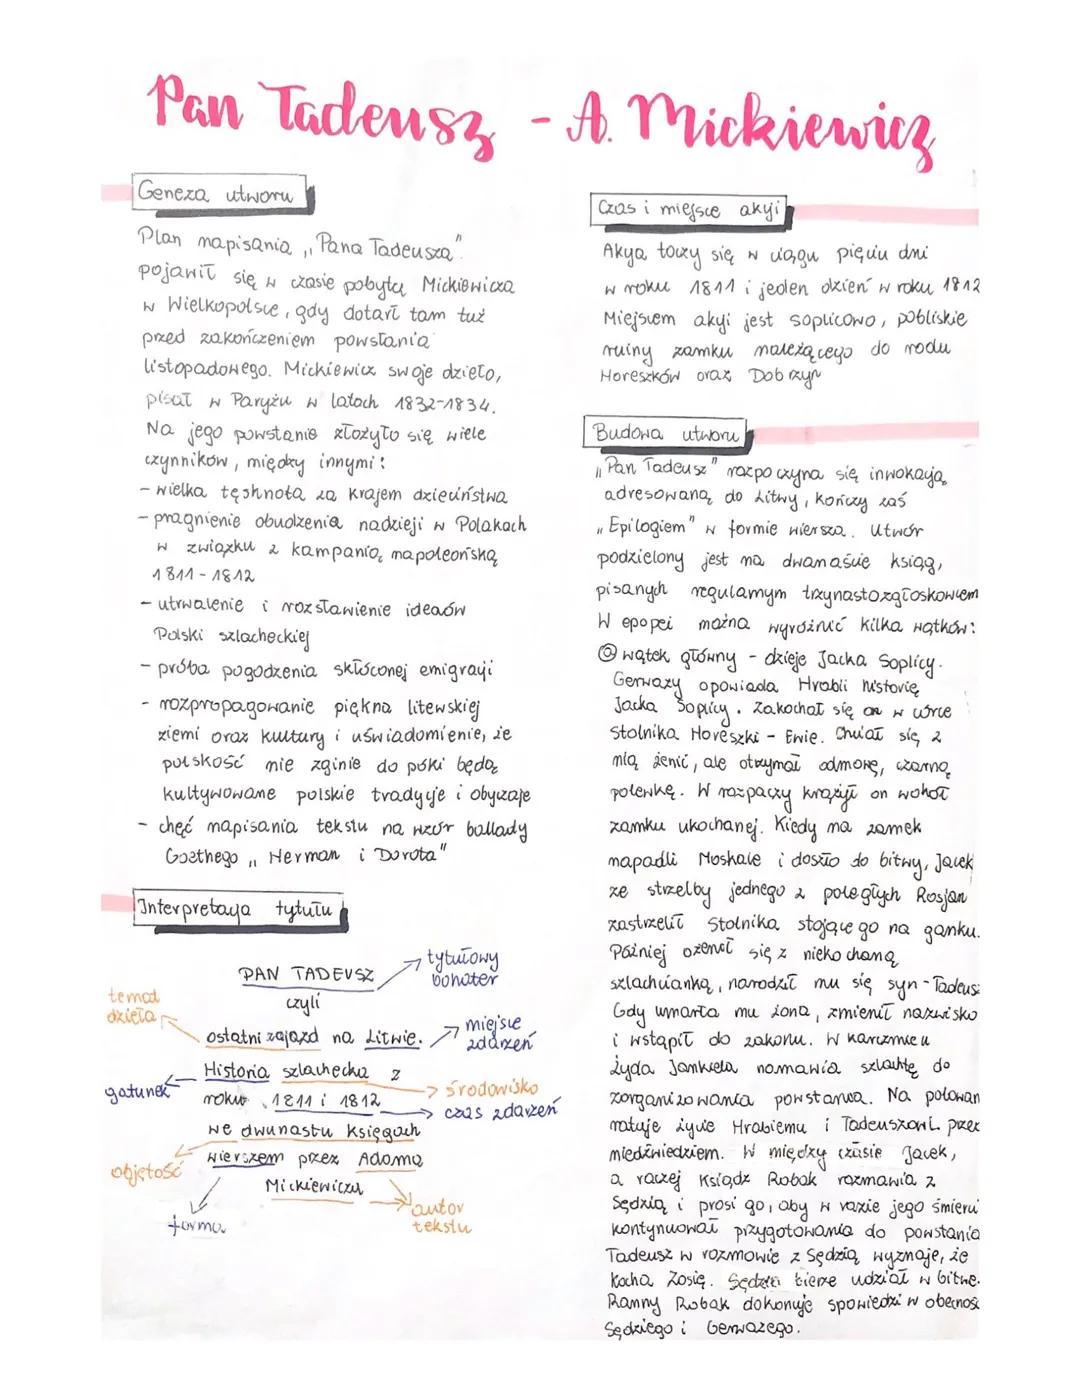 Pan Tadeusz - A. Mickiewicz
Geneza utworu
Plan napisania „Pana Tadeusza".
pojawił się w czasie pobytu Mickiewicza
w Wielkopolsce, gdy dotarł tam tuż
przed zakończeniem powstania
listopadowego. Mickiewicz swoje dzieło,
pisał w Paryżu w latach 1832-1834.
Na jego powstanie złożyło się wiele
czynników, między innymi:
- wielka tęsknota za krajem dzieciństwa
- pragnienie obudzenia nadziei w Polakach
w związku z kampanią napoleońską
1811-1812
- utrwalenie i rozsławienie ideałów
Polski szlacheckiej
- próba pogodzenia skłóconej emigracji
- rozpropagowanie piękna litewskiej
ziemi oraz kultury i uświadomienie, że
polskość nie zginie do póki będą
kultywowane polskie tradycje i obyczaje
- chęć napisania tekstu na wzór ballady
Goethego „Herman i Dorota"
Interpretacja tytułu
PAN TADEUSZ
tytułowy
bohater
czyli
temat
dzieła
ostatni zajazd na Litwie.
miejsce
zdarzeń
Historia szlachecka z
gatunek
środowisko
roku 1811 i 1812
czas zdarzeń
we dwunastu księgach
wierszem przez Adama
objętość
Mickiewicza
forma
autor
tekstu
Czas i miejsce akcji
Akcja toczy się w ciągu pięciu dni
w roku 1811 i jeden dzień w roku 1812
Miejscem akcji jest soplicowo, pobliskie
ruiny zamku należącego do rodu
Horeszków oraz Dobrzyn
Budowa utworu
„Pan Tadeusz" rozpoczyna się inwokacją
adresowaną do Litwy, kończy zaś
„Epilogiem" w formie wiersza. Utwór
podzielony jest na dwanaście ksiąg,
pisanych regularnym trzynastozgłoskowcem
W epopei można wyróżnić kilka wątków:
@ wątek główny - dzieje Jacka Soplicy.
Gerwazy opowiada Hrabli historię
Jacka Soplicy. Zakochał się on w córce
Stolnika Horeszki - Ewie. Chciał się z
nią żenić, ale otrzymał odmowę, czarną
polewkę. W rozpaczy krążył on wokół
zamku ukochanej. Kiedy na zamek
napadli Moskale i doszło do bitwy, Jacek
ze strzelby jednego z poległych Rosjan
zastrzelił Stolnika stojącego na ganku.
Później ożenił się z niekochaną
szlachcianką, narodził mu się syn - Tadeusz
Gdy umarła mu żona, zmienił nazwisko
i wstąpił do zakonu. W karczmie u
Żyda Jankiela namawia szlachtę do
zorganizowania powstania. Na polowan
ratuje życie Hrabiemu i Tadeuszowi przez
niedźwiedziem. W między czasie Jacek,
a raczej Ksiądz Robak rozmawia z
Sędzią i prosi go, aby w razie jego śmierci
kontynuował przygotowania do powstania
Tadeusz w rozmowie z Sędzią wyznaje, że
kocha Zosię. Sędzia bierze udział w bitwe.
Ranny Robak dokonuje spowiedzi w obecnoś
Sędziego i Gerwazego.